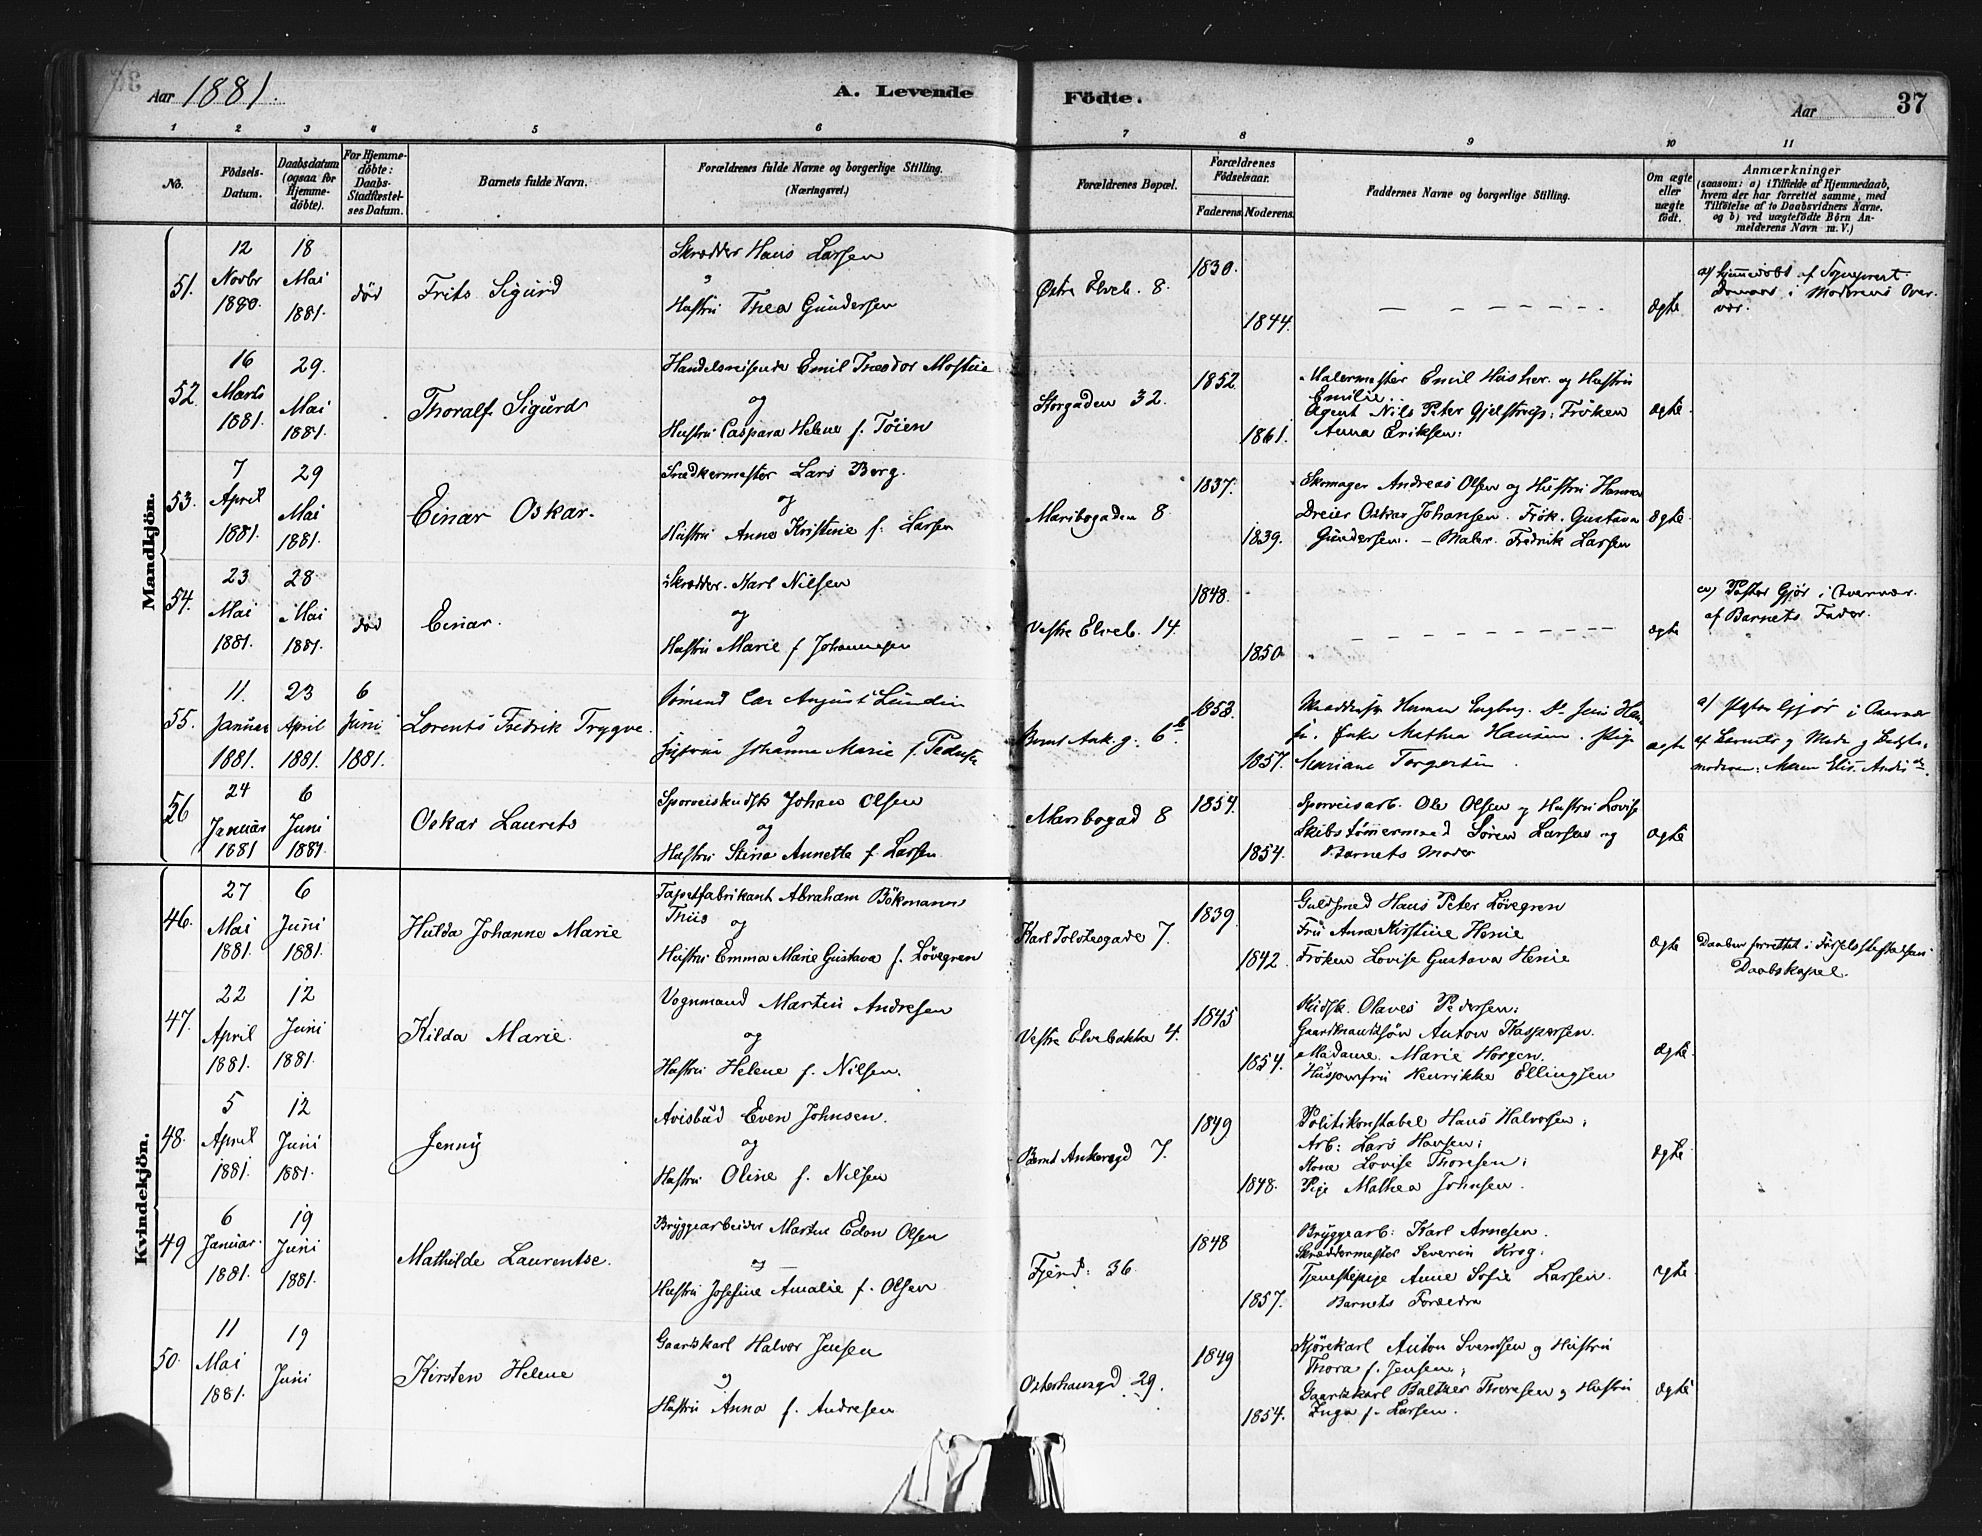 Aar 1881.
A. Levende Födte.
Aar
37
1 2 3 4 5 6 7 8 9 10 11
No.
Födsels-Datum.
Daabsdatum (ogsaa for Hjemme-döbte).
For Hjemme-döbte: Daabs-Stadfæstel-ses Datum.
Barnets fulde Navn.
Forældrenes fulde Navne og borgerlige Stilling. (Næringsvei.)
Forældrenes Bopæl.
Forældrenes Födselsaar.
Faderens. Moderens.
Faddernes Navne og borgerlige Stilling.
Om ægte eller uægte födt.
Anmærkninger (saasom: a) i Tilfælde af Hjemmedaab, hvem der har forrettet samme, med Tilföielse af to Daabsvidners Navne, og b) ved uægtefödte Börn Anmelderens Navn m. V.)
Mandkjön.
51. 12 Novbr 1880. 18 Mai 1881. død
Frits Sigurd
Skrædder Hans Larsen
Hustru Thea Gundersen
Østre Elveb. 8.
1830.
1844.
ægte
a) Hjemmedøbt af Sogneprest
i Moderens Over-
vær.
52. 16 Marts 1881. 29. Mai 1881.
Thoralf Sigurd
Handelsreisende Emil Theodor
og
Hustru Caspara Helene f. Tøien
Storgaden 32.
1852.
1861.
Malermester Emil og Hustru
Emilie.
Agent Nils Peter Gjelstrup; Frøken
Anna Eriksen.
ægte
53. 7 April 1881. 29 Mai 1881.
Einar Oskar.
Lars Berg.
og
Hustru Anne Kristine f. Larsen
Maribogaden 8
1837.
1839.
Skomager Andreas Olsen og Hustru Hanna
Dreier Oskar Johansen. Frøk. Gustava
Gundersen. - Maler. Fredrik Larsen
ægte
54. 23 Mai 1881. 28 Mai 1881. død
Einar.
Skrædder. Karl Nilsen
og
Hustru Marie f Johannesen
Vestre Elveb. 14.
1848.
1850
ægte
a) Pastor Gjør i Overvær
af Barnets Fader.
55. 11. Januar 1881. 23 April 1881. 6 Juni 1881.
Lorents Fredrik Trygve
Sømand August Lundin
Johanne Marie f.
Bernt Ank. g. 6 b
1853.
1857.
Mathea Hansen. Pige
Mariane Torgersen
ægte
a) Pastor Gjør i Overvær
af Barnets Moder
56 24 Januar 1881 6 Juni 1881.
Oskar Laurets
Sporveiskudsk Johan Olsen
og
Hustru Stina Annette f. Larsen
Maribogad 8
1854.
1854.
Sporveisarb. Ole Olsen og Hustru Lovise
Skibstømmermand Søren Larsen og
Barnets Moder
ægte
Kvindekjön.
46. 27 Mai 1881. 6 Juni 1881.
Hulda Johanne Marie
Tapetfabrikant Abraham Bökmanns
Thiis og
Hustru Emma Marie Gustava f. Lövegren
Karl Tolstesgade 7.
1839.
1842.
Guldsmed Hans Peter Lövegren
Fru Anne Kirstine Henie
Frøken Lovise Gustava Henie
ægte
Daaben forrettet i Fødselsstiftelsens
Daabskapel.
47. 22 April 1881. 12 Juni 1881.
Kilda Marie.
Vognmand Martin Andresen
og
Hustru Helene f. Nilsen.
Vestre Elvebakke 4.
1845
1854.
Kudsk. Olaves Pedersen;
Gaardmandssøn Anton Kaspersen.
Madame. Marie Horgen.
Husjomfru Henrikke Ellingsen
ægte
48. 5 April 1881. 12 Juni 1881.
Jenny
Avisbud Even Johnsen.
og
Hustru Oline f. Nilsen
Bernt Ankersgd 7.
1849
1848.
Politikonstabel Hans Halvorsen;
Arb: Lars Hansen;
Kone Lovise Thoresen;
Pige Mathea Johnsen.
ægte
49 6 Januar. 1881. 19 Juni 1881.
Mathilde Laurentse.
Bryggearbeider Martin Edon Olsen
og
Hustru Josefine Amalie f. Olsen
Fjerd: 36.
1848
1857.
Bryggearb: Karl Arnesen.
Skræddermester Severin Krog.
Tjenestepige Anne Sofie Larsen.
Barnets Forældre
ægte
50. 11 Mai 1881. 19 Juni
Kirsten Helene
Gaardskarl Halvor Jensen
og
Hustru Anna f. Andresen
Osterhausgd 29.
1849
1854.
Kjörekarl Anton Svendsen og Hustru
Thora f. Jensen;
Gaardskarl Baltzer Thoresen og Hustru
Inga f. Larsen.
ægte